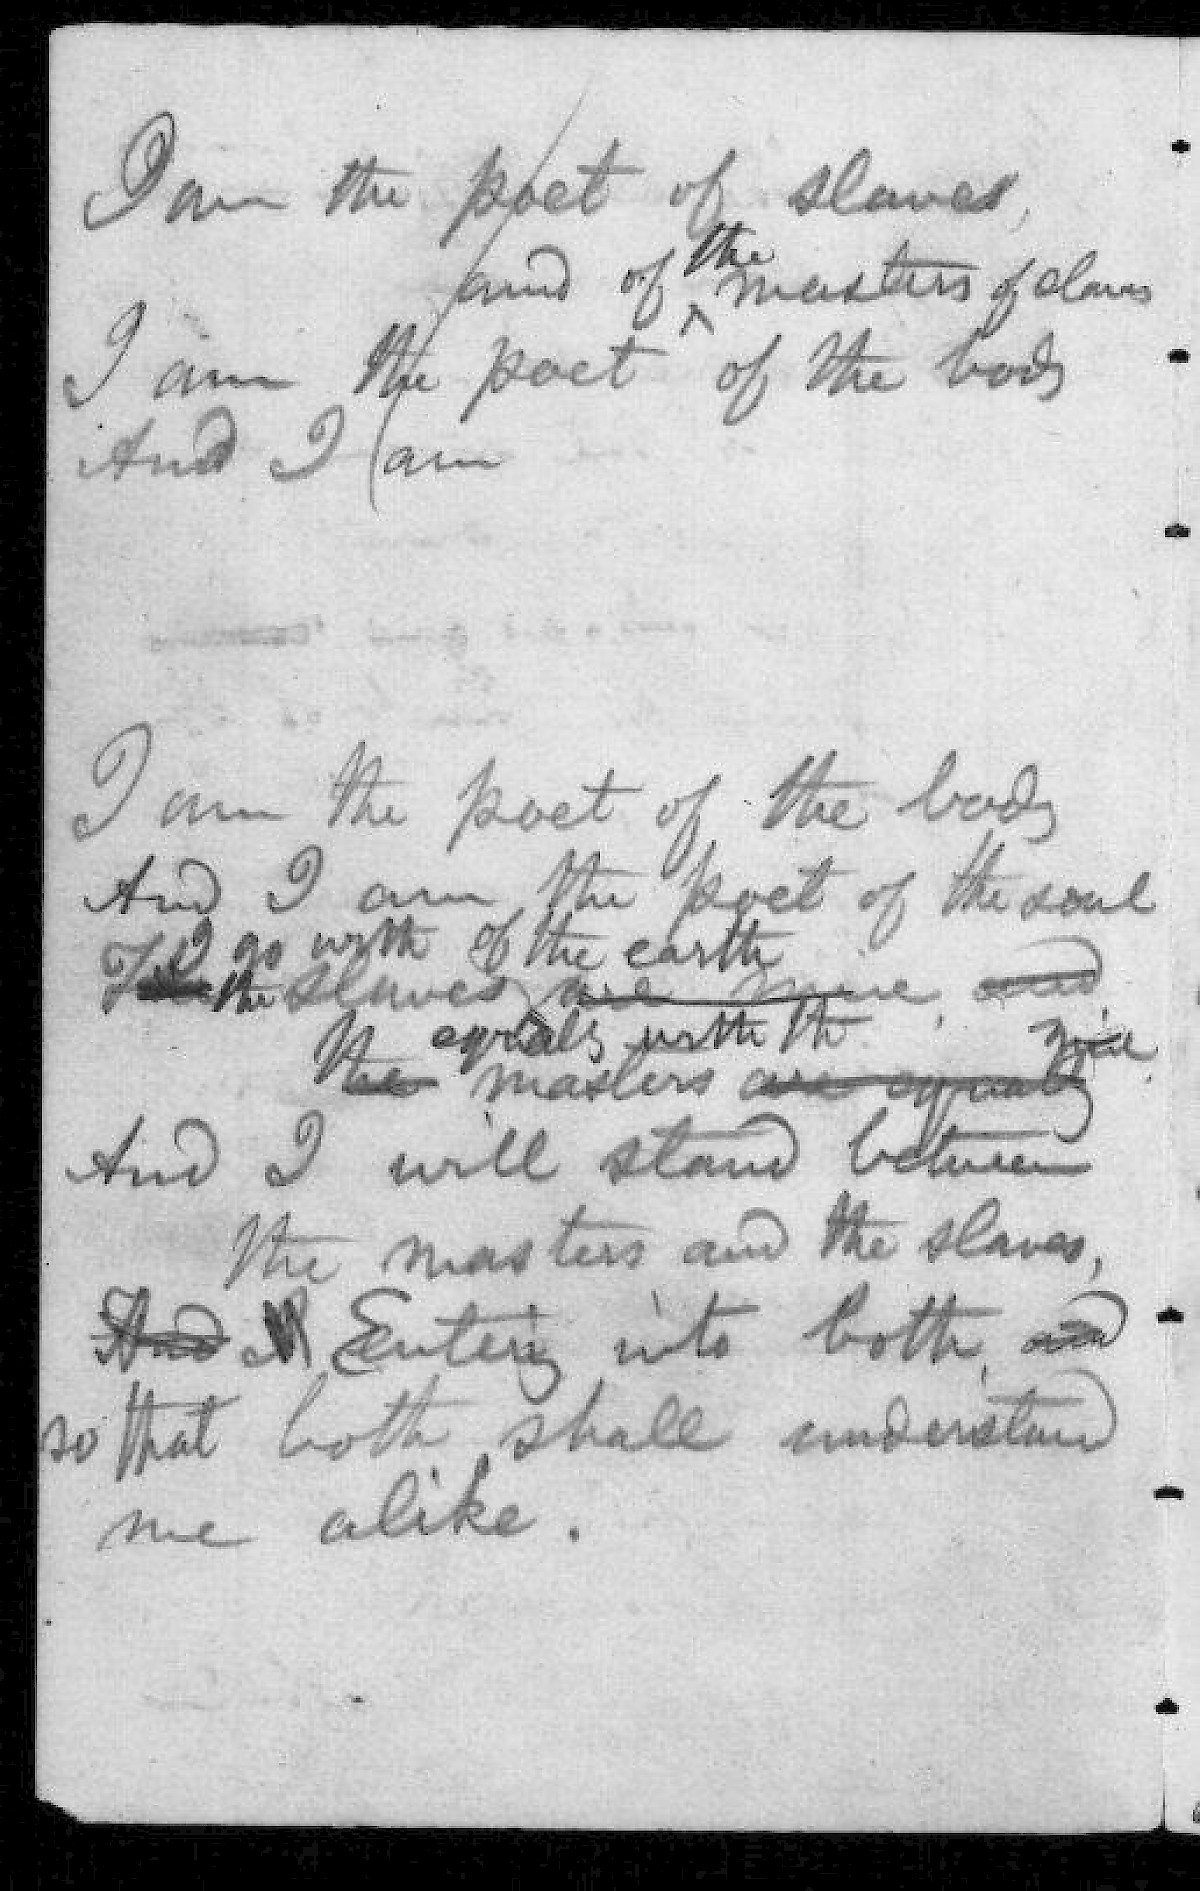 I am the poet of slaves,
and of the masters of slaves
I am the poet of the body
And I am
I am the poet of the body
And I am the poet of the soul
I go with of the earth
the slaves are mine, and
equally with the
The masters are equally mine
And I will stand between
the masters and the slaves,
And I Entering into both, and
so that both shall understand
me alike.